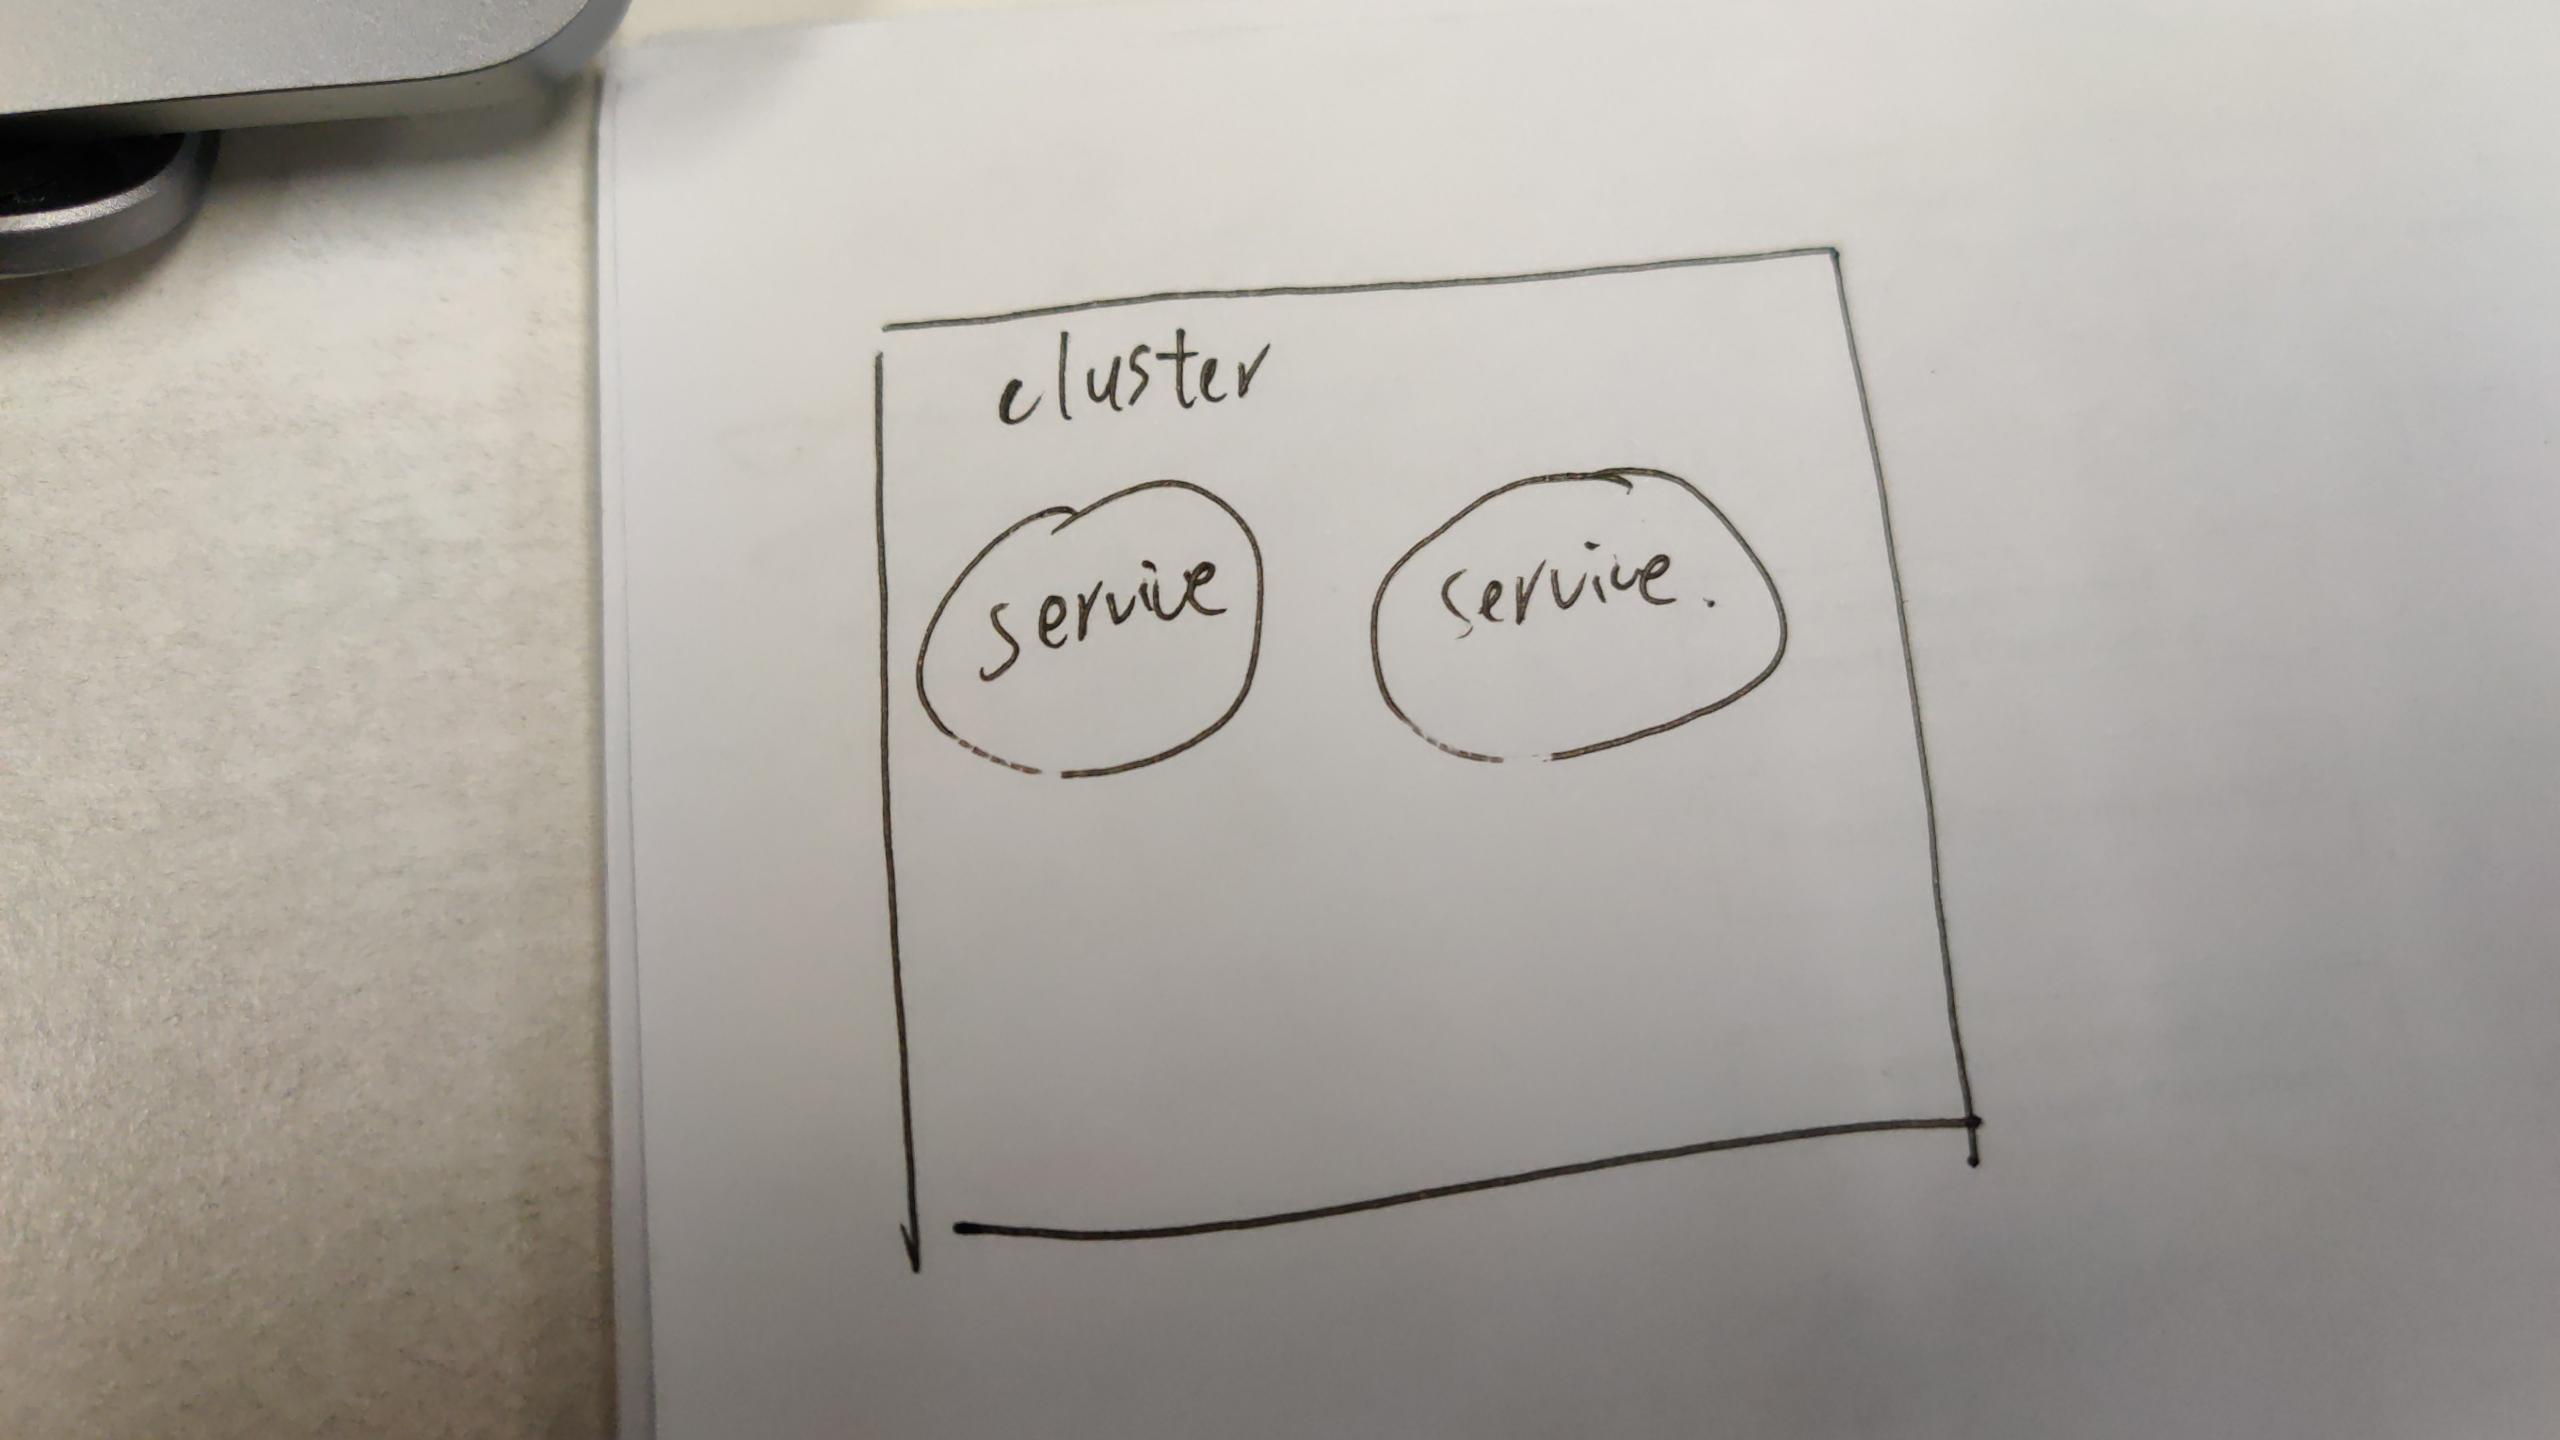 cluster
service
service.